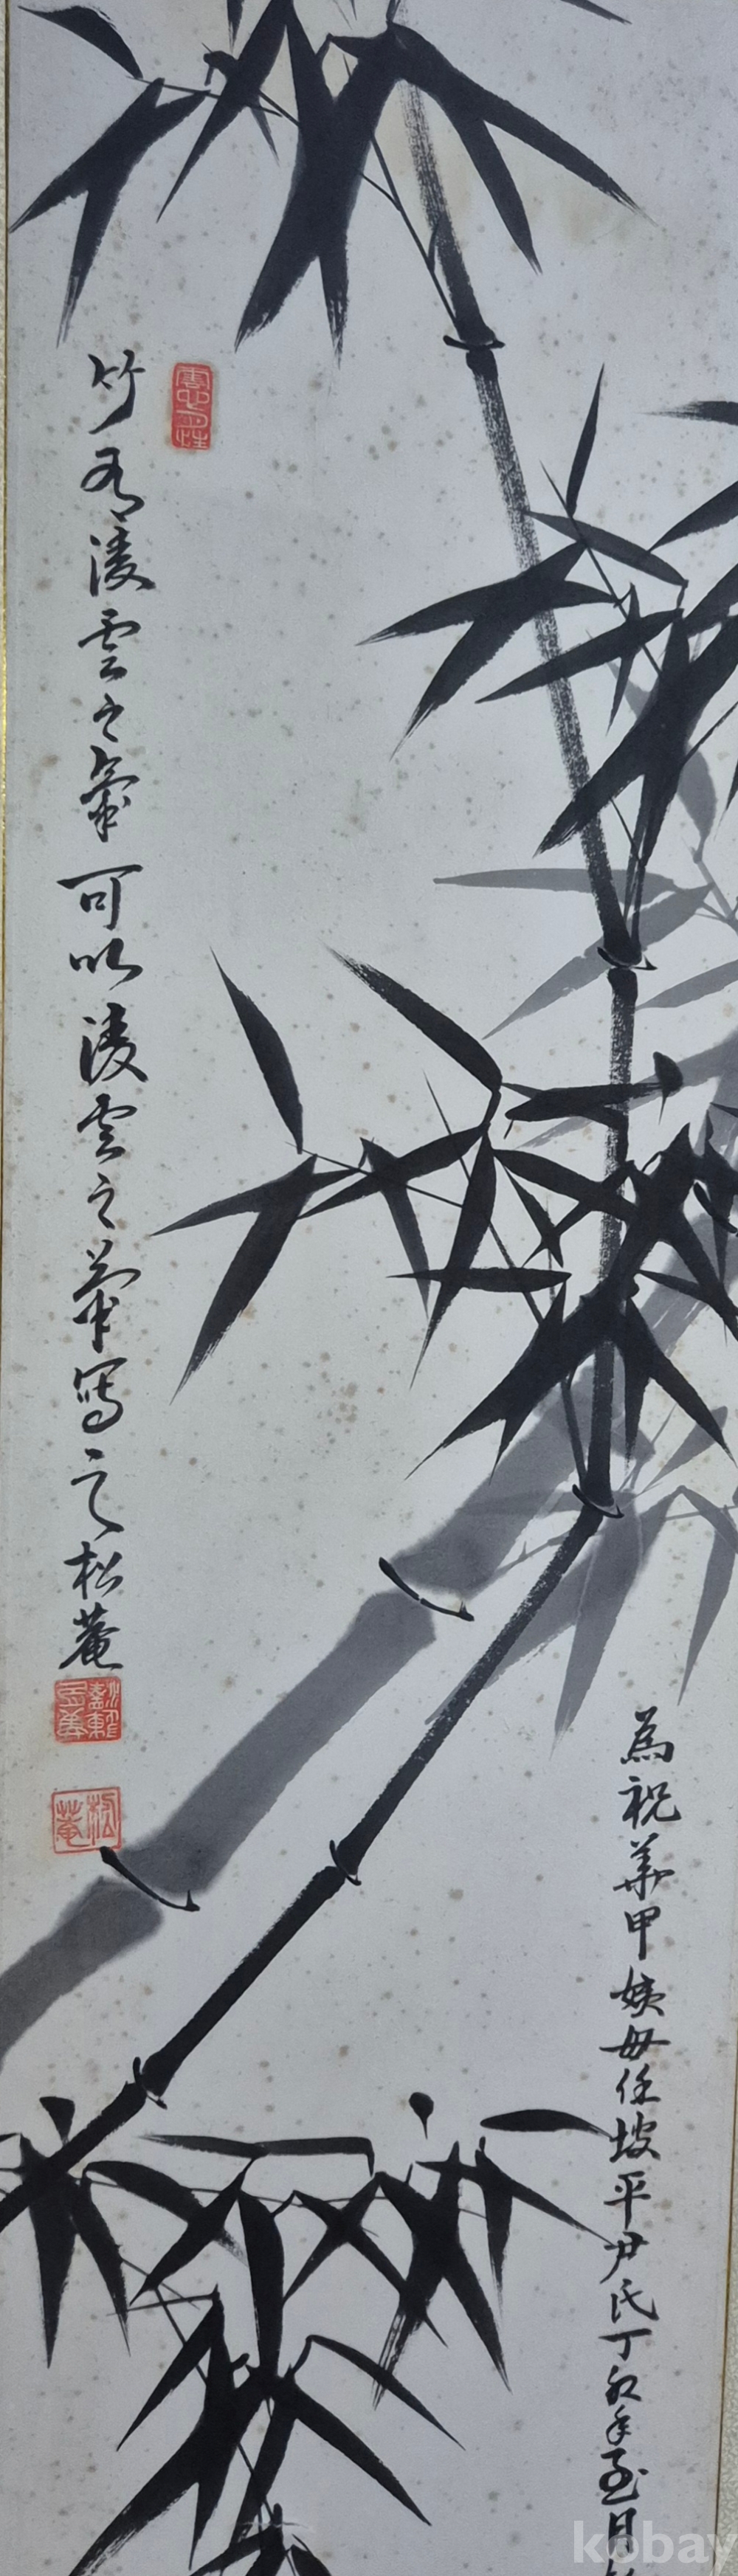 竹有淩雲之氣可以淩雲之筆寫之松菴
松菴
為祝華甲姨母任坡平尹氏丁卯年至月
kobay